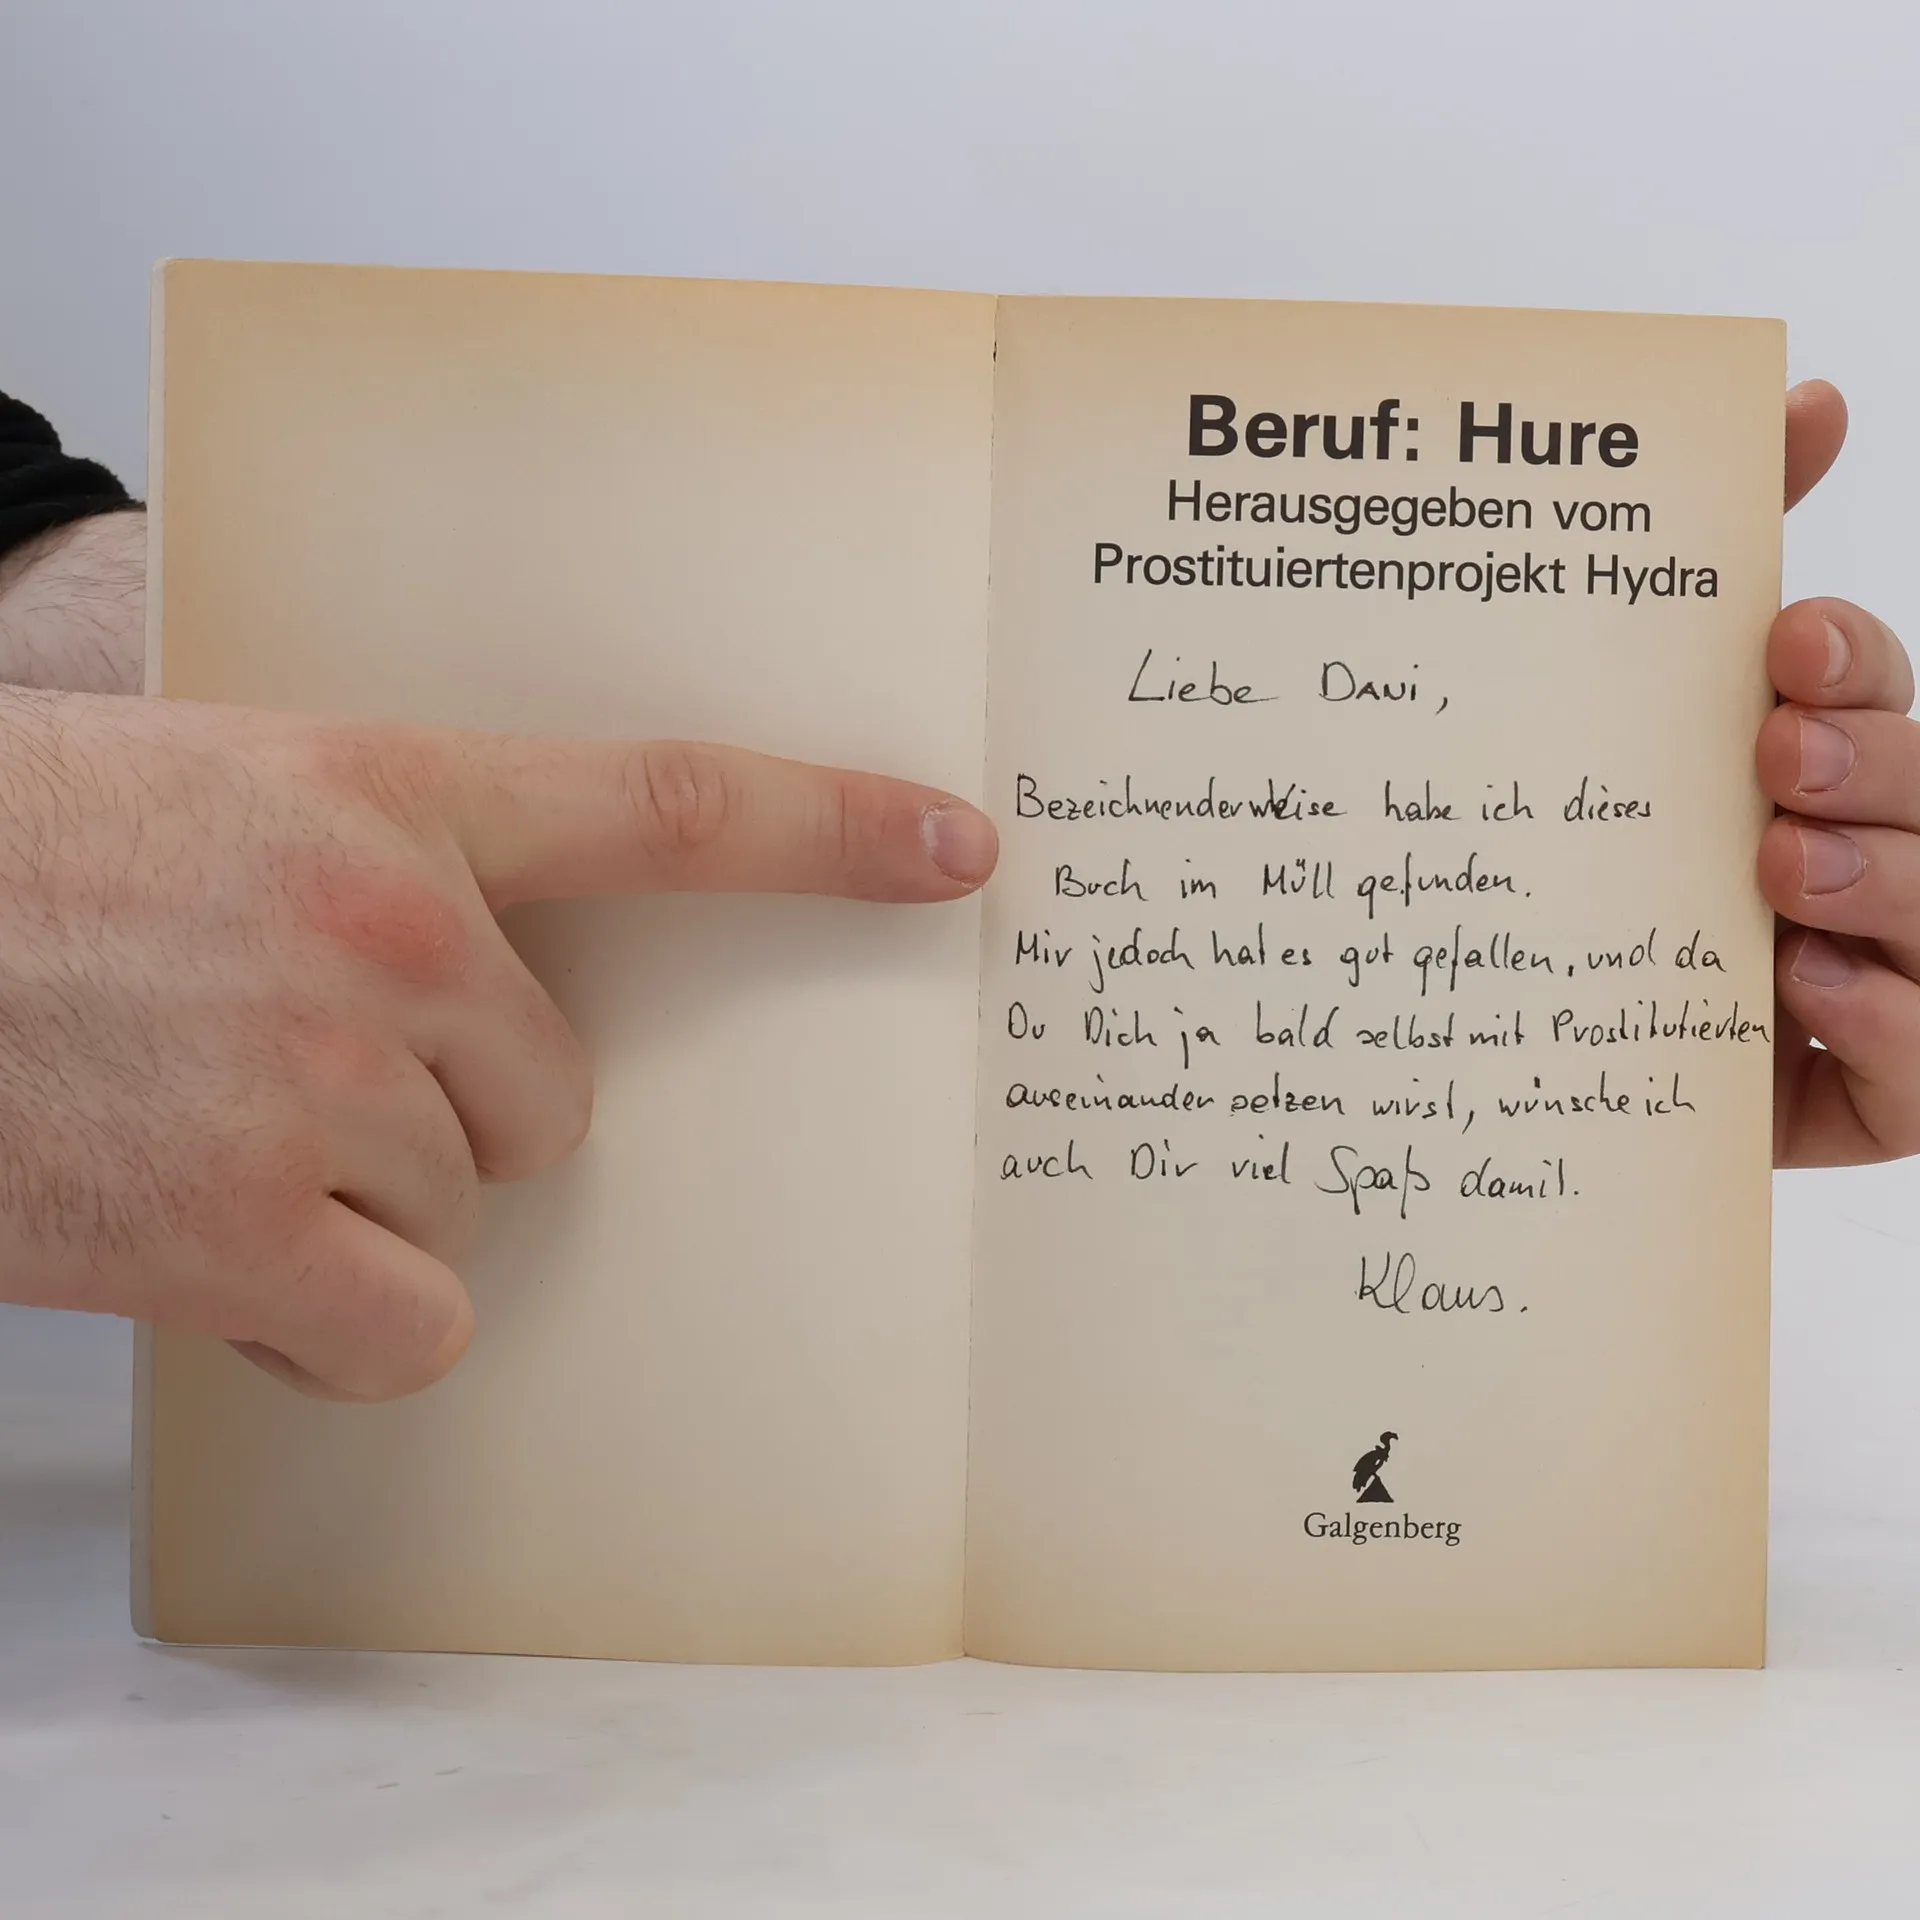 Beruf: Hure
Herausgegeben vom
Prostituiertenprojekt Hydra
Liebe Dani,
Bezeichnenderweise habe ich dieses
Buch im Müll gefunden.
Mir jedoch hat es gut gefallen, und da
Du Dich ja bald selbst mit Prostitutierten
auseinander setzen wirst, wünsche ich
auch Dir viel Spaß damit.
Klaus.
Galgenberg